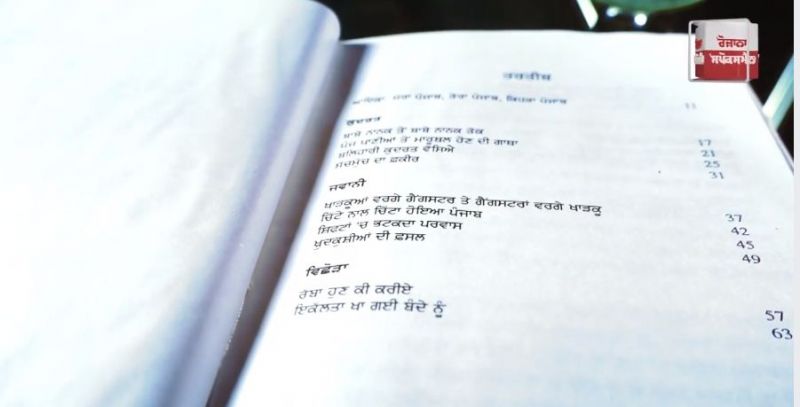 ਰੋਜ਼ਾਨਾ
ਸਪੋਕਸਮੈਨ
ਤਰਤੀਬ
ਮੇਰਾ ਪੰਜਾਬ, ਤੇਰਾ ਪੰਜਾਬ, ਕਿਹੜਾ ਪੰਜਾਬ 11
ਕੁਦਰਤ
ਬਾਬੇ ਨਾਨਕ ਤੋਂ ਬਾਬੇ ਨਾਨਕ ਤੱਕ 17
ਪੰਜ ਪਾਣੀਆਂ ਤੋਂ ਮਾਰੂਥਲ ਹੋਣ ਦੀ ਗਾਥਾ 21
ਬਲਿਹਾਰੀ ਕੁਦਰਤ ਵੱਸਿਐ 25
ਸੱਚਮੁੱਚ ਦਾ ਫ਼ਕੀਰ 31
ਜਵਾਨੀ
ਖਾੜਕੂਆਂ ਵਰਗੇ ਗੈਂਗਸਟਰ ਤੇ ਗੈਂਗਸਟਰਾਂ ਵਰਗੇ ਖਾੜਕੂ 37
ਚਿੱਟੇ ਨਾਲ ਚਿੱਟਾ ਹੋਇਆ ਪੰਜਾਬ 42
ਸ਼ਿਫਟਾਂ 'ਚ ਭਟਕਦਾ ਪਰਵਾਸ 45
ਖ਼ੁਦਕੁਸ਼ੀਆਂ ਦੀ ਫ਼ਸਲ 49
ਵਿਛੋੜਾ
ਰੱਬਾ ਹੁਣ ਕੀ ਕਰੀਏ 57
ਇਕੱਲਤਾ ਖਾ ਗਈ ਬੰਦੇ ਨੂੰ 63